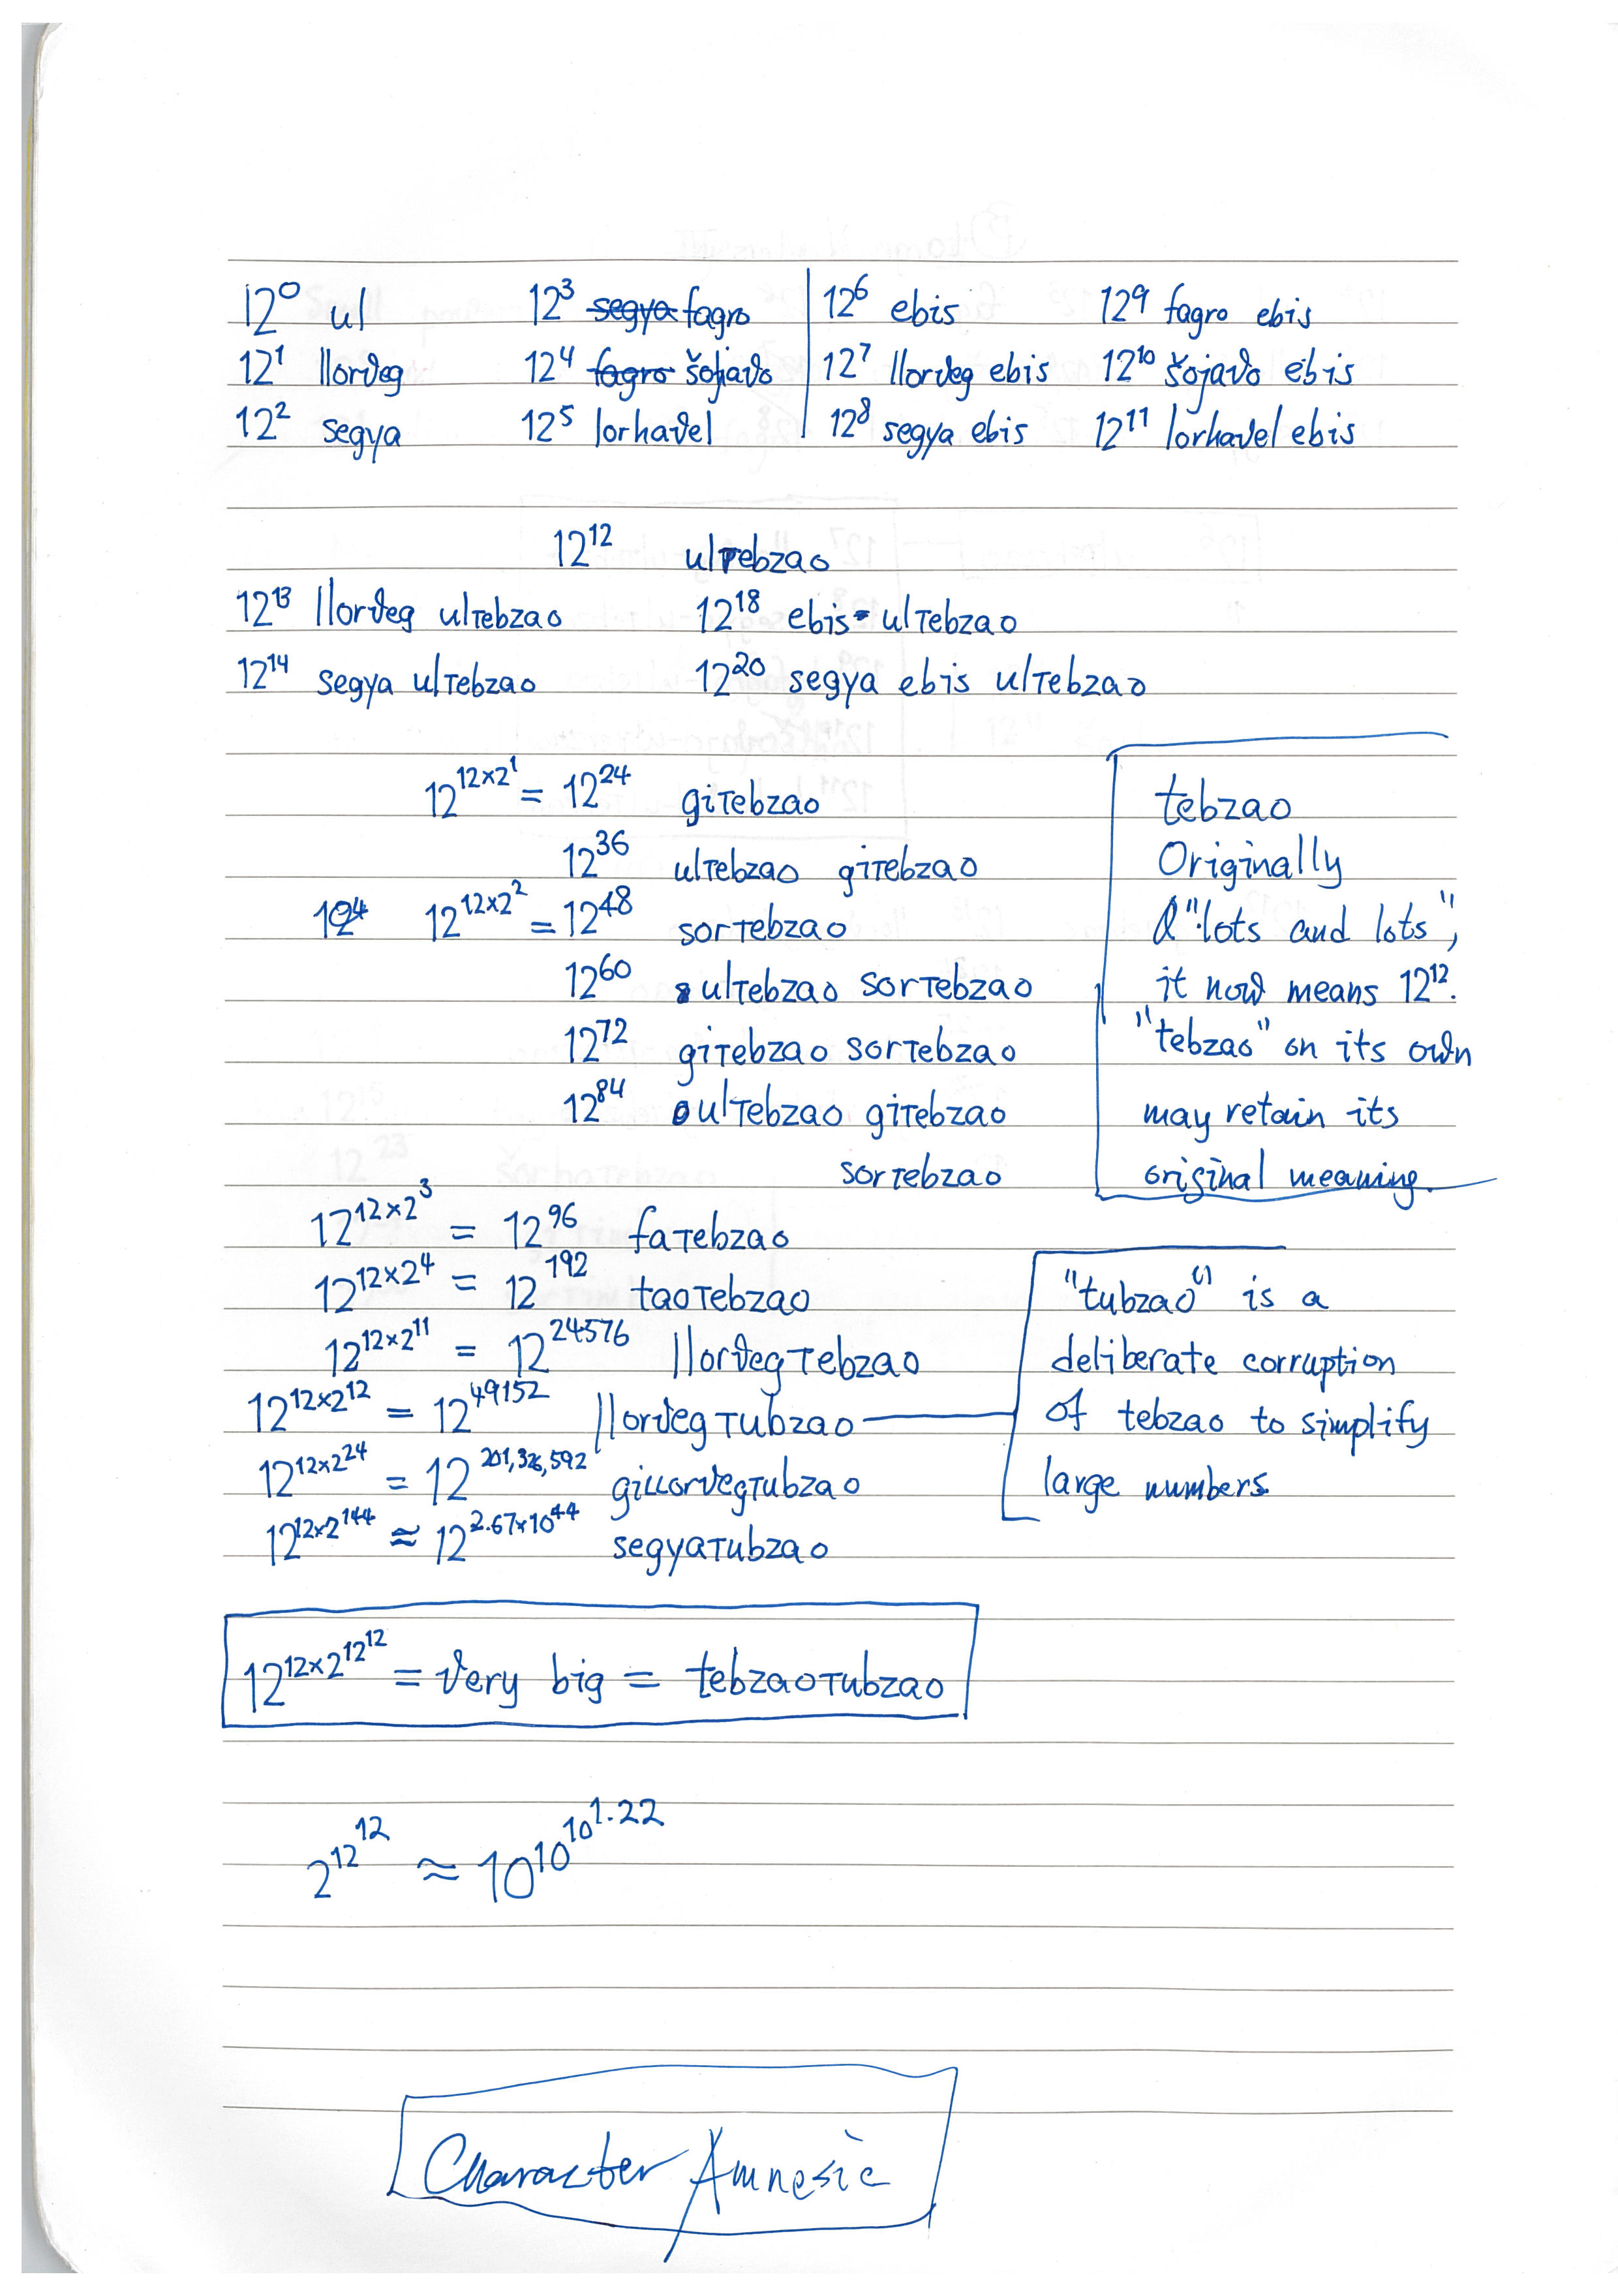 12⁰ ul 12³ segya fagro 12⁶ ebis 12⁹ fagro ebis
12¹ llorveg 12⁴ fagro šojavo 12⁷ llorveg ebis 12¹⁰ šojavo ebis
12² segya 12⁵ lorhavel 12⁸ segya ebis 12¹¹ lorhavel ebis
12¹² ulтebzao
12¹³ llorveg ulтebzao 12¹⁸ ebis ulтebzao
12¹⁴ segya ulтebzao 12²⁰ segya ebis ulтebzao
12^(12×2¹) = 12²⁴ giтebzao
12³⁶ ulтebzao giтebzao
12^(12×2²) = 12⁴⁸ sorтebzao
12⁶⁰ ulтebzao sorтebzao
12⁷² giтebzao sorтebzao
12⁸⁴ ulтebzao giтebzao
sorтebzao
tebzao
Originally
"lots and lots",
it now means 12¹².
"tebzao" on its own
may retain its
original meaning.
12^(12×2³) = 12⁹⁶ faтebzao
12^(12×2⁴) = 12¹⁹² taoтebzao
12^(12×2¹¹) = 12²⁴⁵⁷⁶ llorvegтebzao
12^(12×2¹²) = 12⁴⁹¹⁵² llorvegтubzao
12^(12×2²⁴) = 12^(201,326,592) giʟʟorvegтubzao
12^(12×2¹⁴⁴) ≈ 12^(2.67×10⁴⁴) segyaтubzao
"tubzao" is a
deliberate corruption
of tebzao to simplify
large numbers.
12^(12×2^(12^12)) = very big = tebzaoтubzao
2^(12^12) ≈ 10^(10^(10^1.22))
Character Amnesic